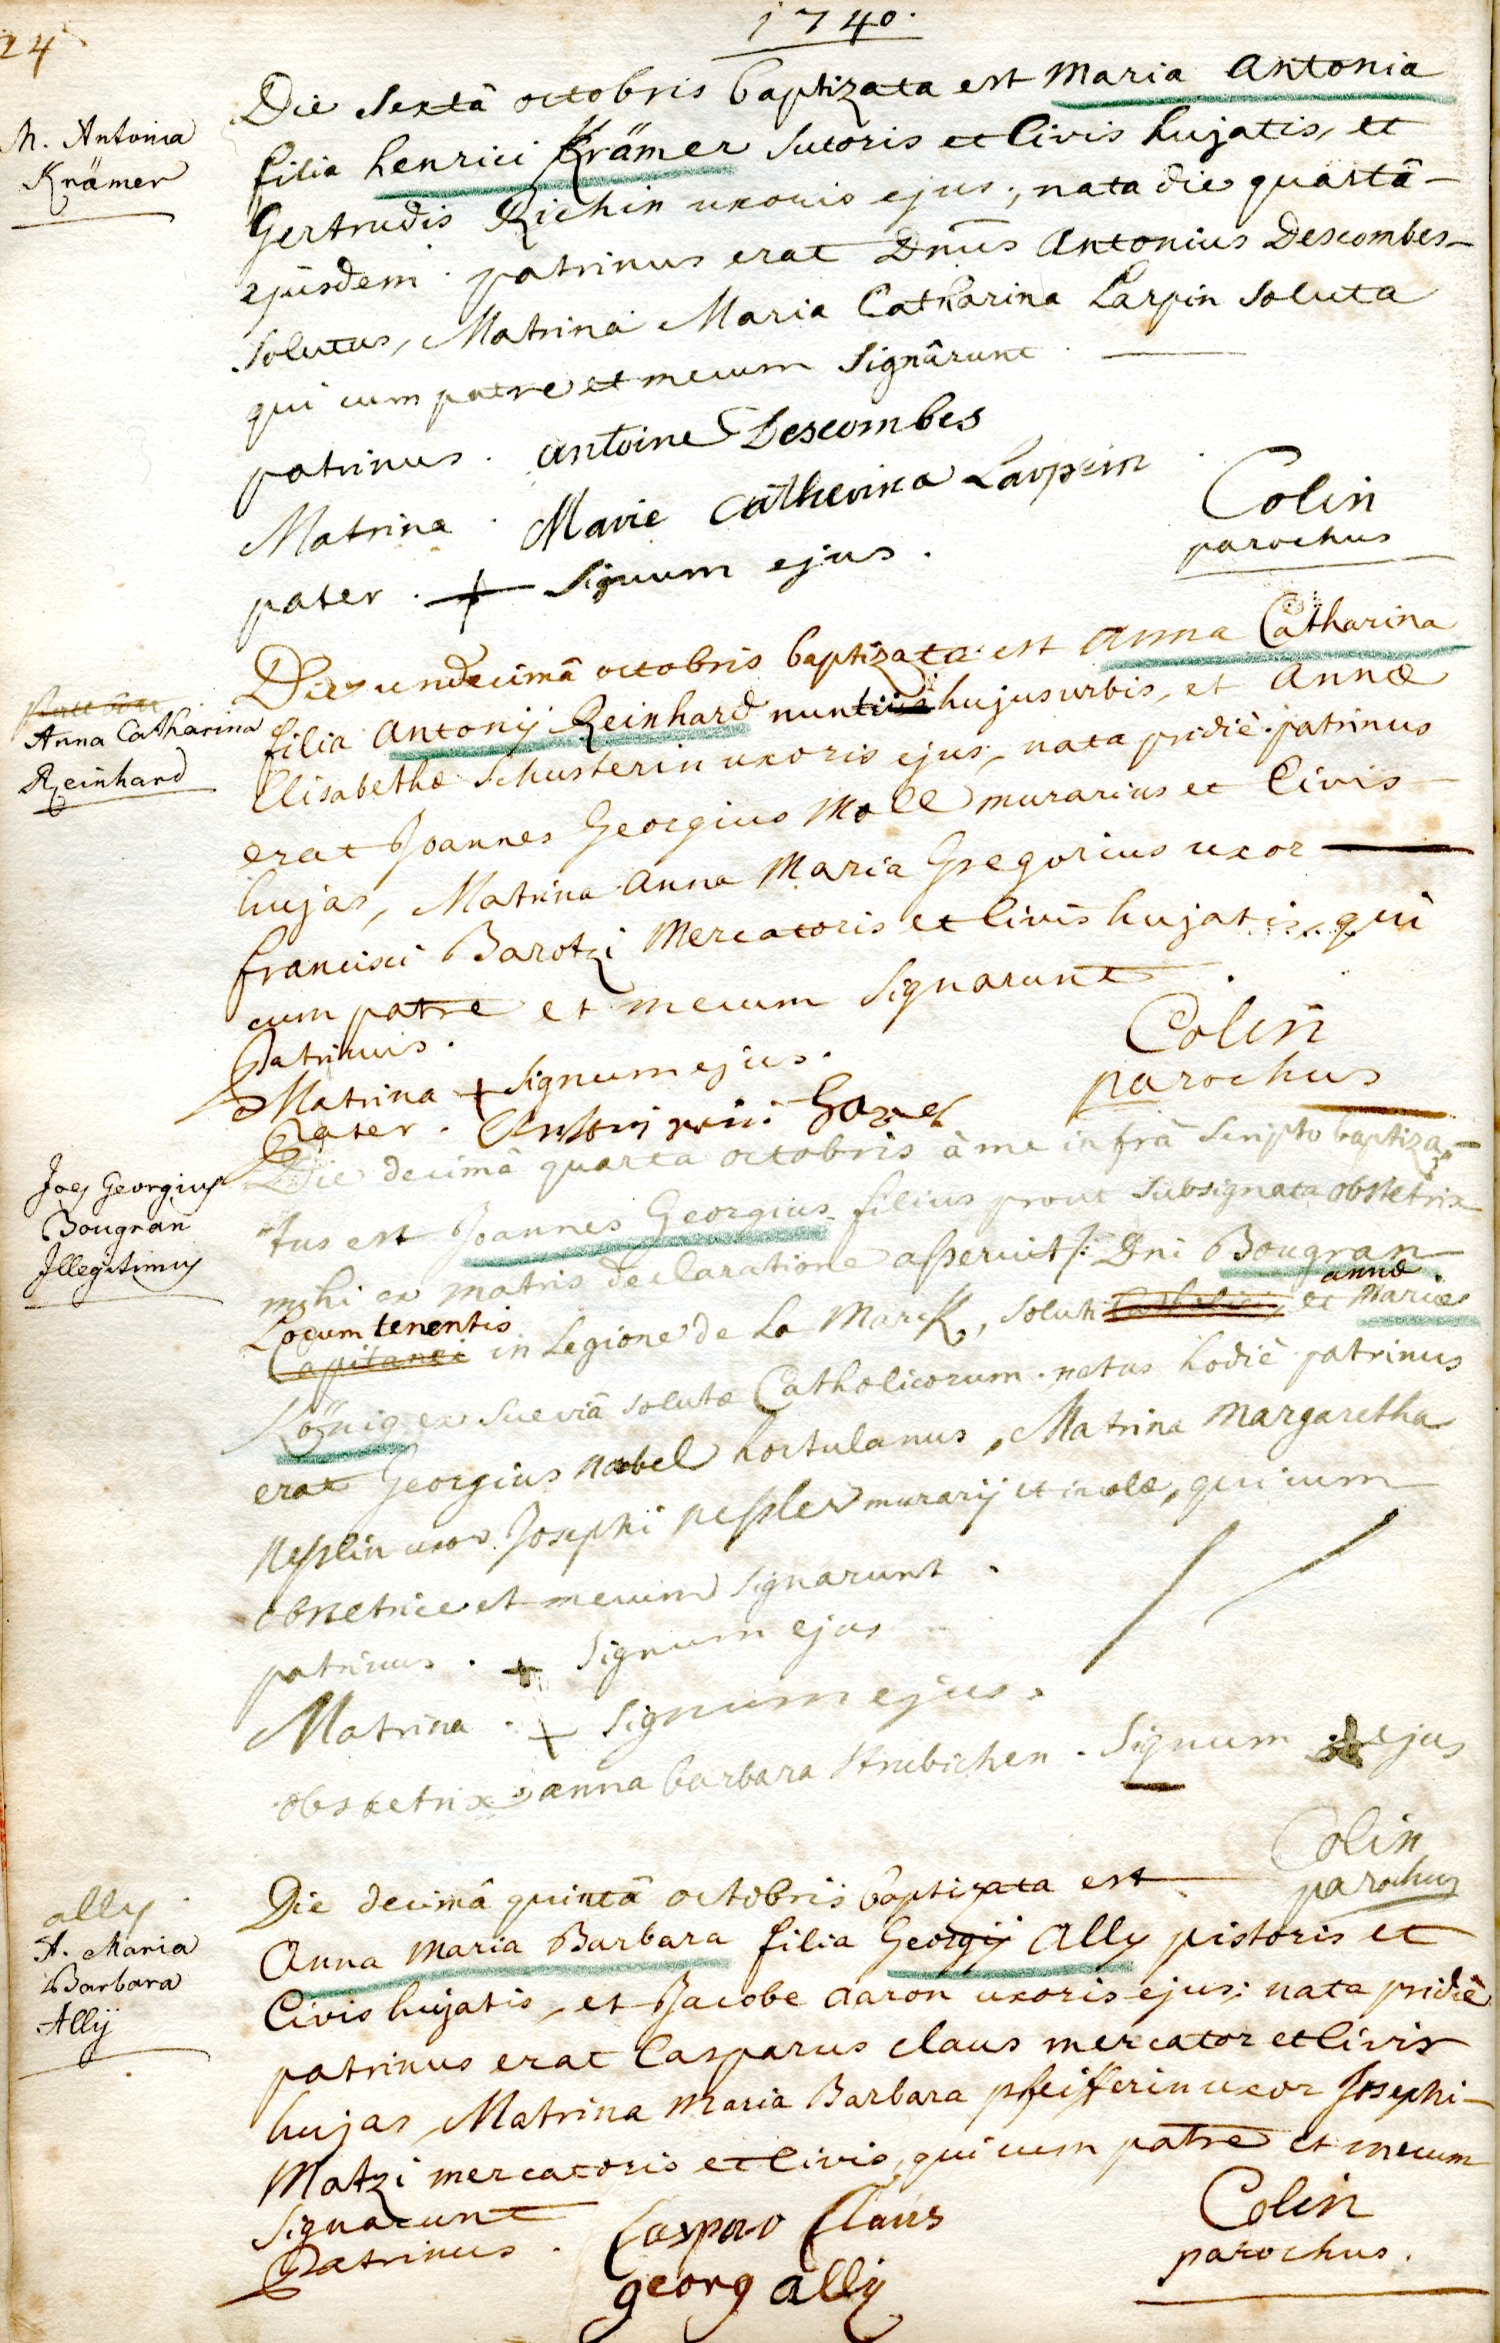 1740.
24
Die Sextâ octobris baptizata est Maria Antonia
M. Antonia
Krämer
filia henrici Krämer Sutoris et Civis hujatis, et
Gertrudis Richin uxoris ejus; nata die quartâ
ejusdem. patrinus erat Dnus Antonius Descombes
Solutus, Matrina Maria Catharina Larpin Soluta
qui cum patre et mecum Signârunt.
patrinus. antoine Descombes
Matrina. Marie Catherina Larpin
pater. + Signum ejus.
Colin
parochus
Die undecimâ octobris baptizata est Anna Catharina
Anna Catharina
Reinhard
filia Antonij Reinhard hujus urbis, et Annæ
Elisabethæ Schusterin uxoris ejus, nata pridiè. patrinus
erat Joannes Georgius Moll murarius et Civis
hujas, Matrina Anna Maria Gregorius uxor
francisci Barotzi Mercatoris et Civis hujatis, qui
cum patre et mecum Signarunt
Patrinus.
Matrina + Signum ejus.
Pater.
Colin
parochus
Die decimâ quarta octobris à me infrà Scripto baptiza-
Joes Georgius
Bougran
Illegitimus
tus est Joannes Georgius filius prout Subsignata obstetrix
mihi ex matris declaratione asseruit /: Dni Bougran
Locum tenentis
annæ
Capitanei in Legione de La Marck, soluti et Mariæ
König ex Sueviâ solutæ Catholicorum. natus hodiè patrinus
erat Georgius Nabel hortulanus, Matrina Margaretha
Nesslin uxor Josephi Nessler murarij et incolæ, qui cum
obstetrice et mecum Signarunt.
patrinus. + Signum ejus
Matrina. + Signum ejus.
obstetrix anna barbara Strubichen. Signum + ejus
Colin
parochus
Die decimâ quintâ octobris baptizata est
ally
A. Maria
Barbara
Ally
Anna Maria Barbara filia Georgij Ally pistoris et
Civis hujatis, et Jacobe Aaron uxoris ejus; nata pridiè
patrinus erat Casparus Claus mercator et Civis
hujas, Matrina Maria Barbara pfeifferin uxor Josephi
Matzi mercatoris et Civis, qui cum patre et mecum
Signarunt
Patrinus. Caspar Claus
georg ally
Colin
parochus.